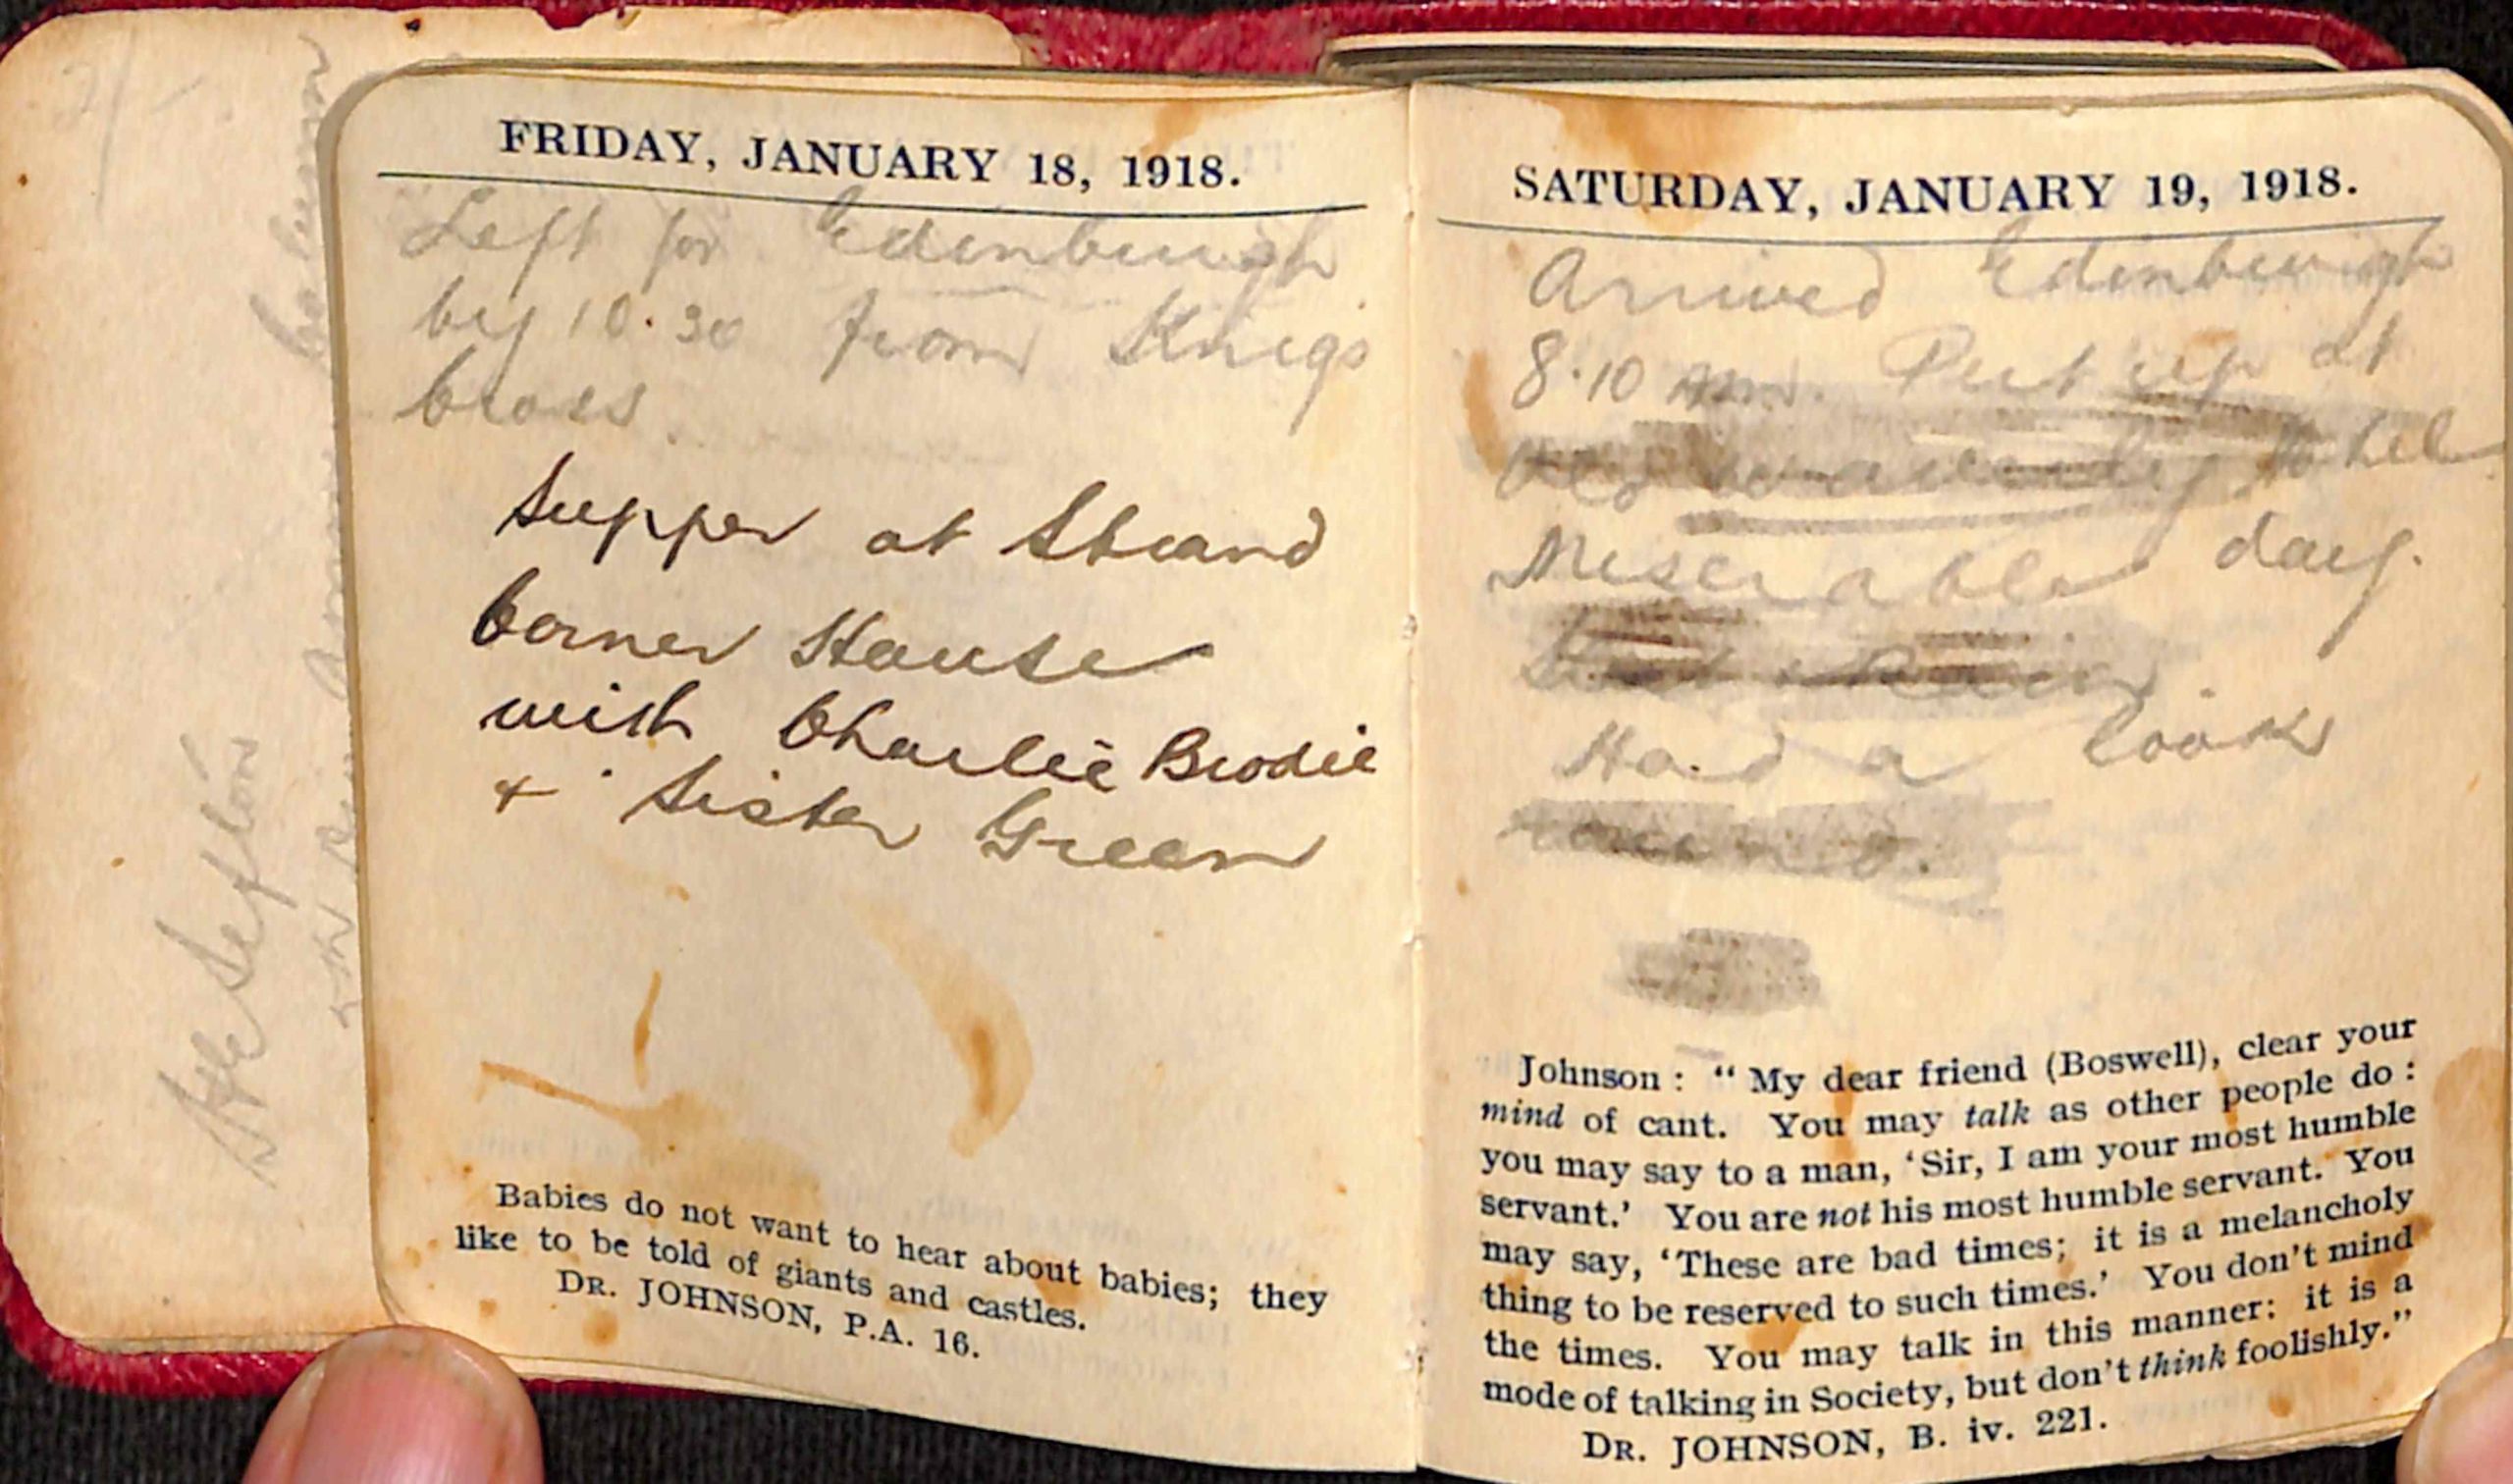 FRIDAY, JANUARY 18, 1918.
Left for Edinburgh
by 10.30 from Kings
Cross.
Supper at Strand
Corner House
with Charlie Brodie
& Sister Green
Babies do not want to hear about babies; they
like to be told of giants and castles.
DR. JOHNSON, P.A. 16.
SATURDAY, JANUARY 19, 1918.
Arrived Edinburgh
8.10 am. Put up at
Old Waverley Hotel
Miserable day.
& Rain.
Had a look
round.
Johnson : “ My dear friend (Boswell), clear your
mind of cant. You may talk as other people do :
you may say to a man, ‘Sir, I am your most humble
servant.’ You are not his most humble servant. You
may say, ‘These are bad times; it is a melancholy
thing to be reserved to such times.’ You don’t mind
the times. You may talk in this manner: it is a
mode of talking in Society, but don’t think foolishly.”
DR. JOHNSON, B. iv. 221.
Sefton